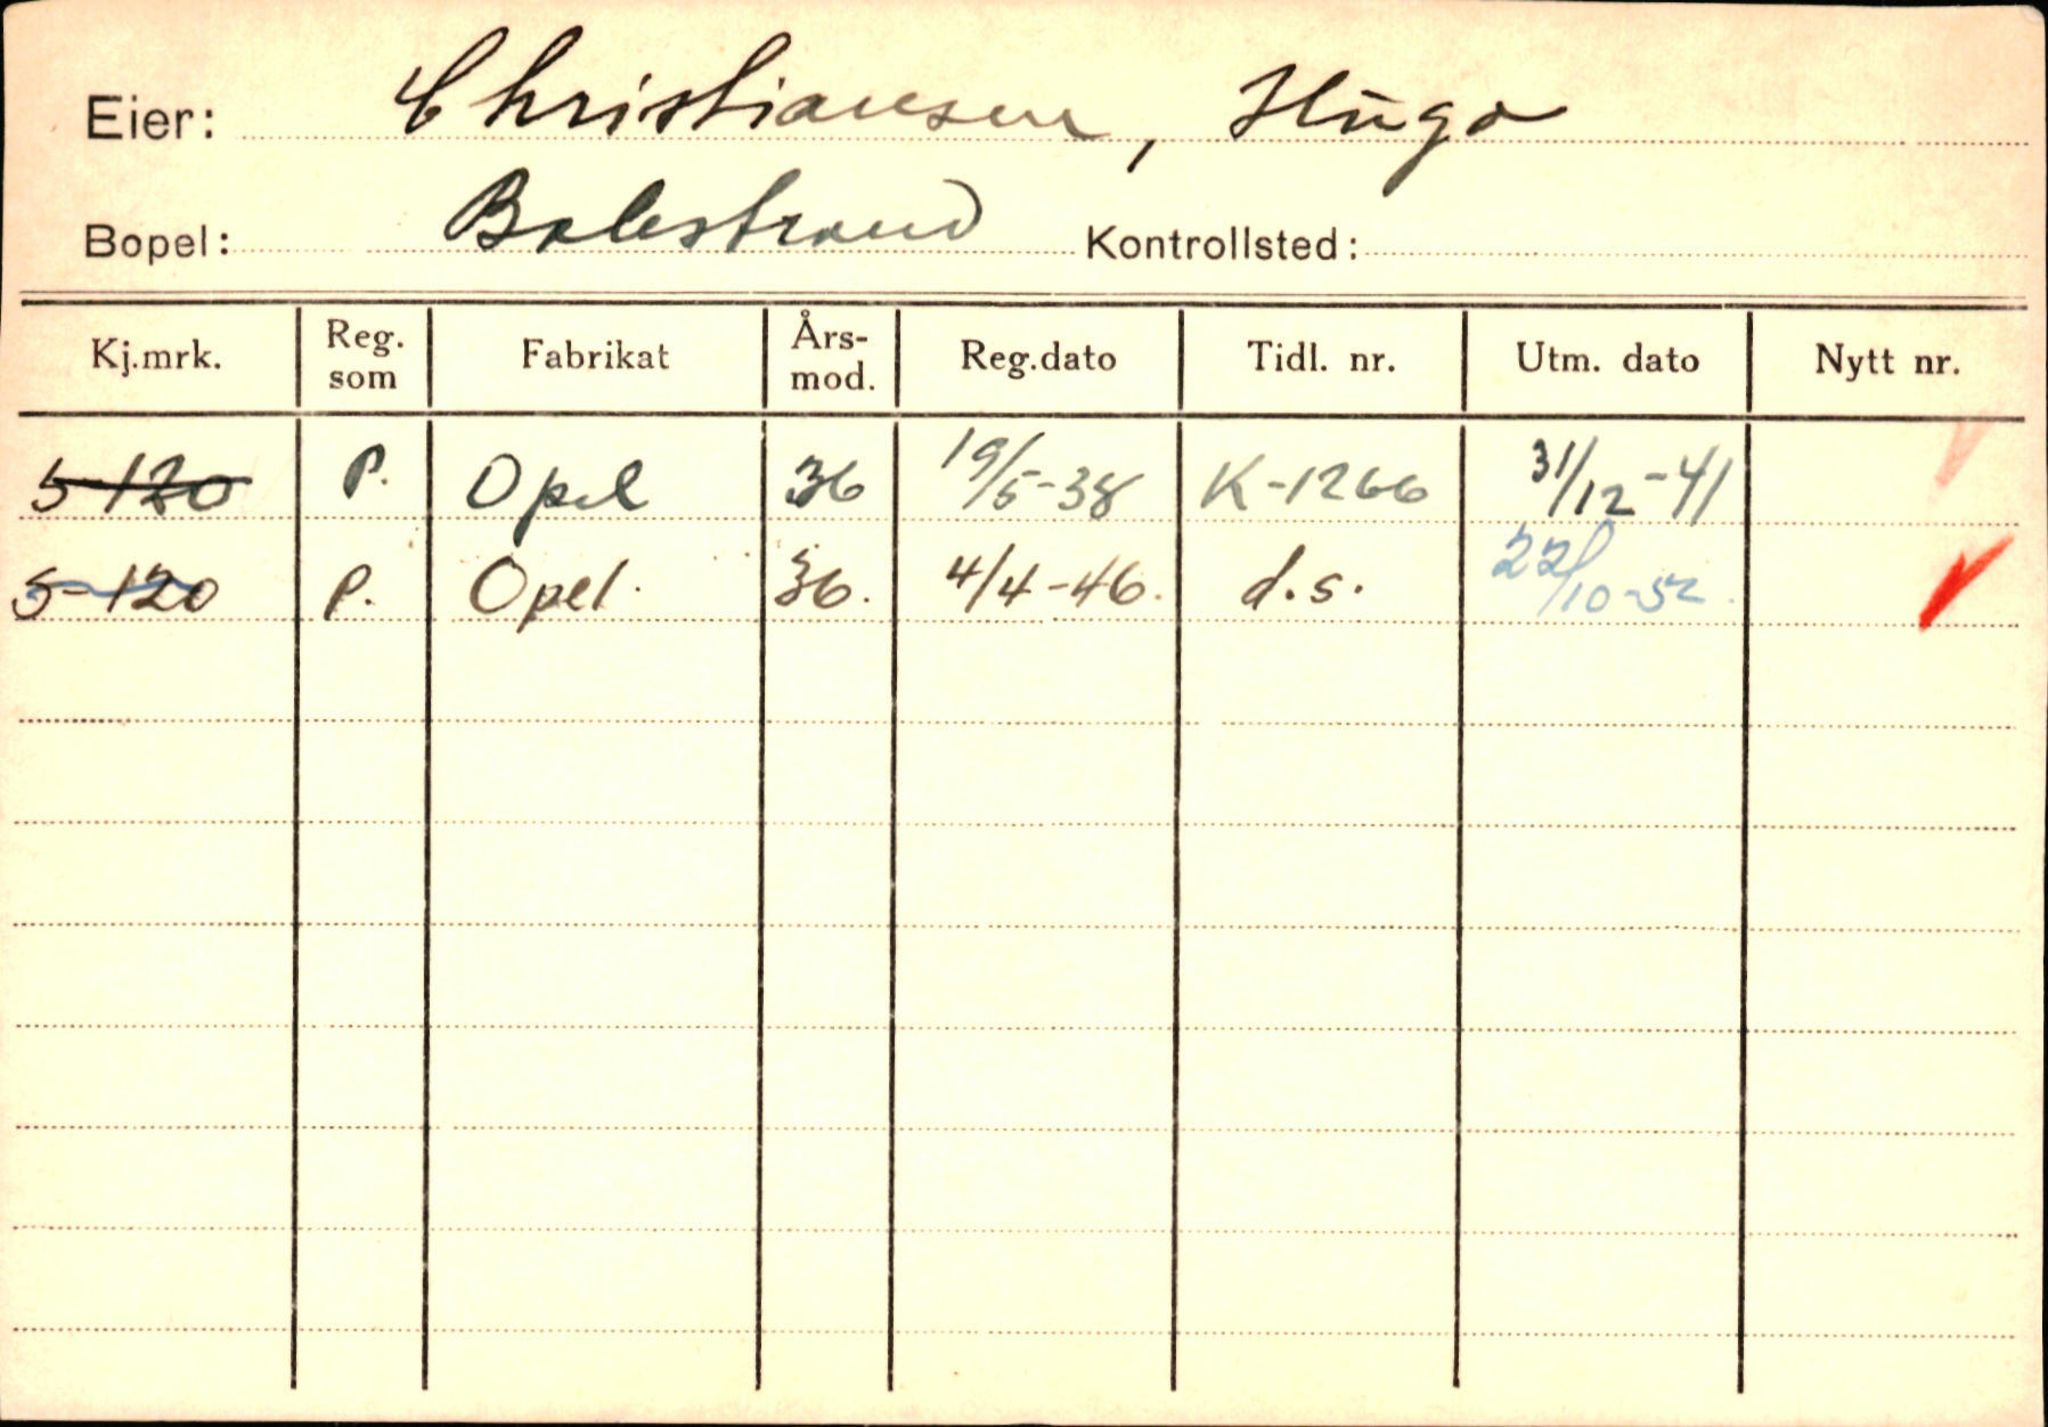 Eier: Christiansen, Hugo
Bopel: Balestrand Kontrollsted:
Kj.mrk. Reg. som Fabrikat Års-mod. Reg.dato Tidl. nr. Utm. dato Nytt nr.
S-120 P. Opel 36 19/5-38 K-1266 31/12-41
S-120 P. Opel. 36. 4/4-46. d.s. 22/10-52.